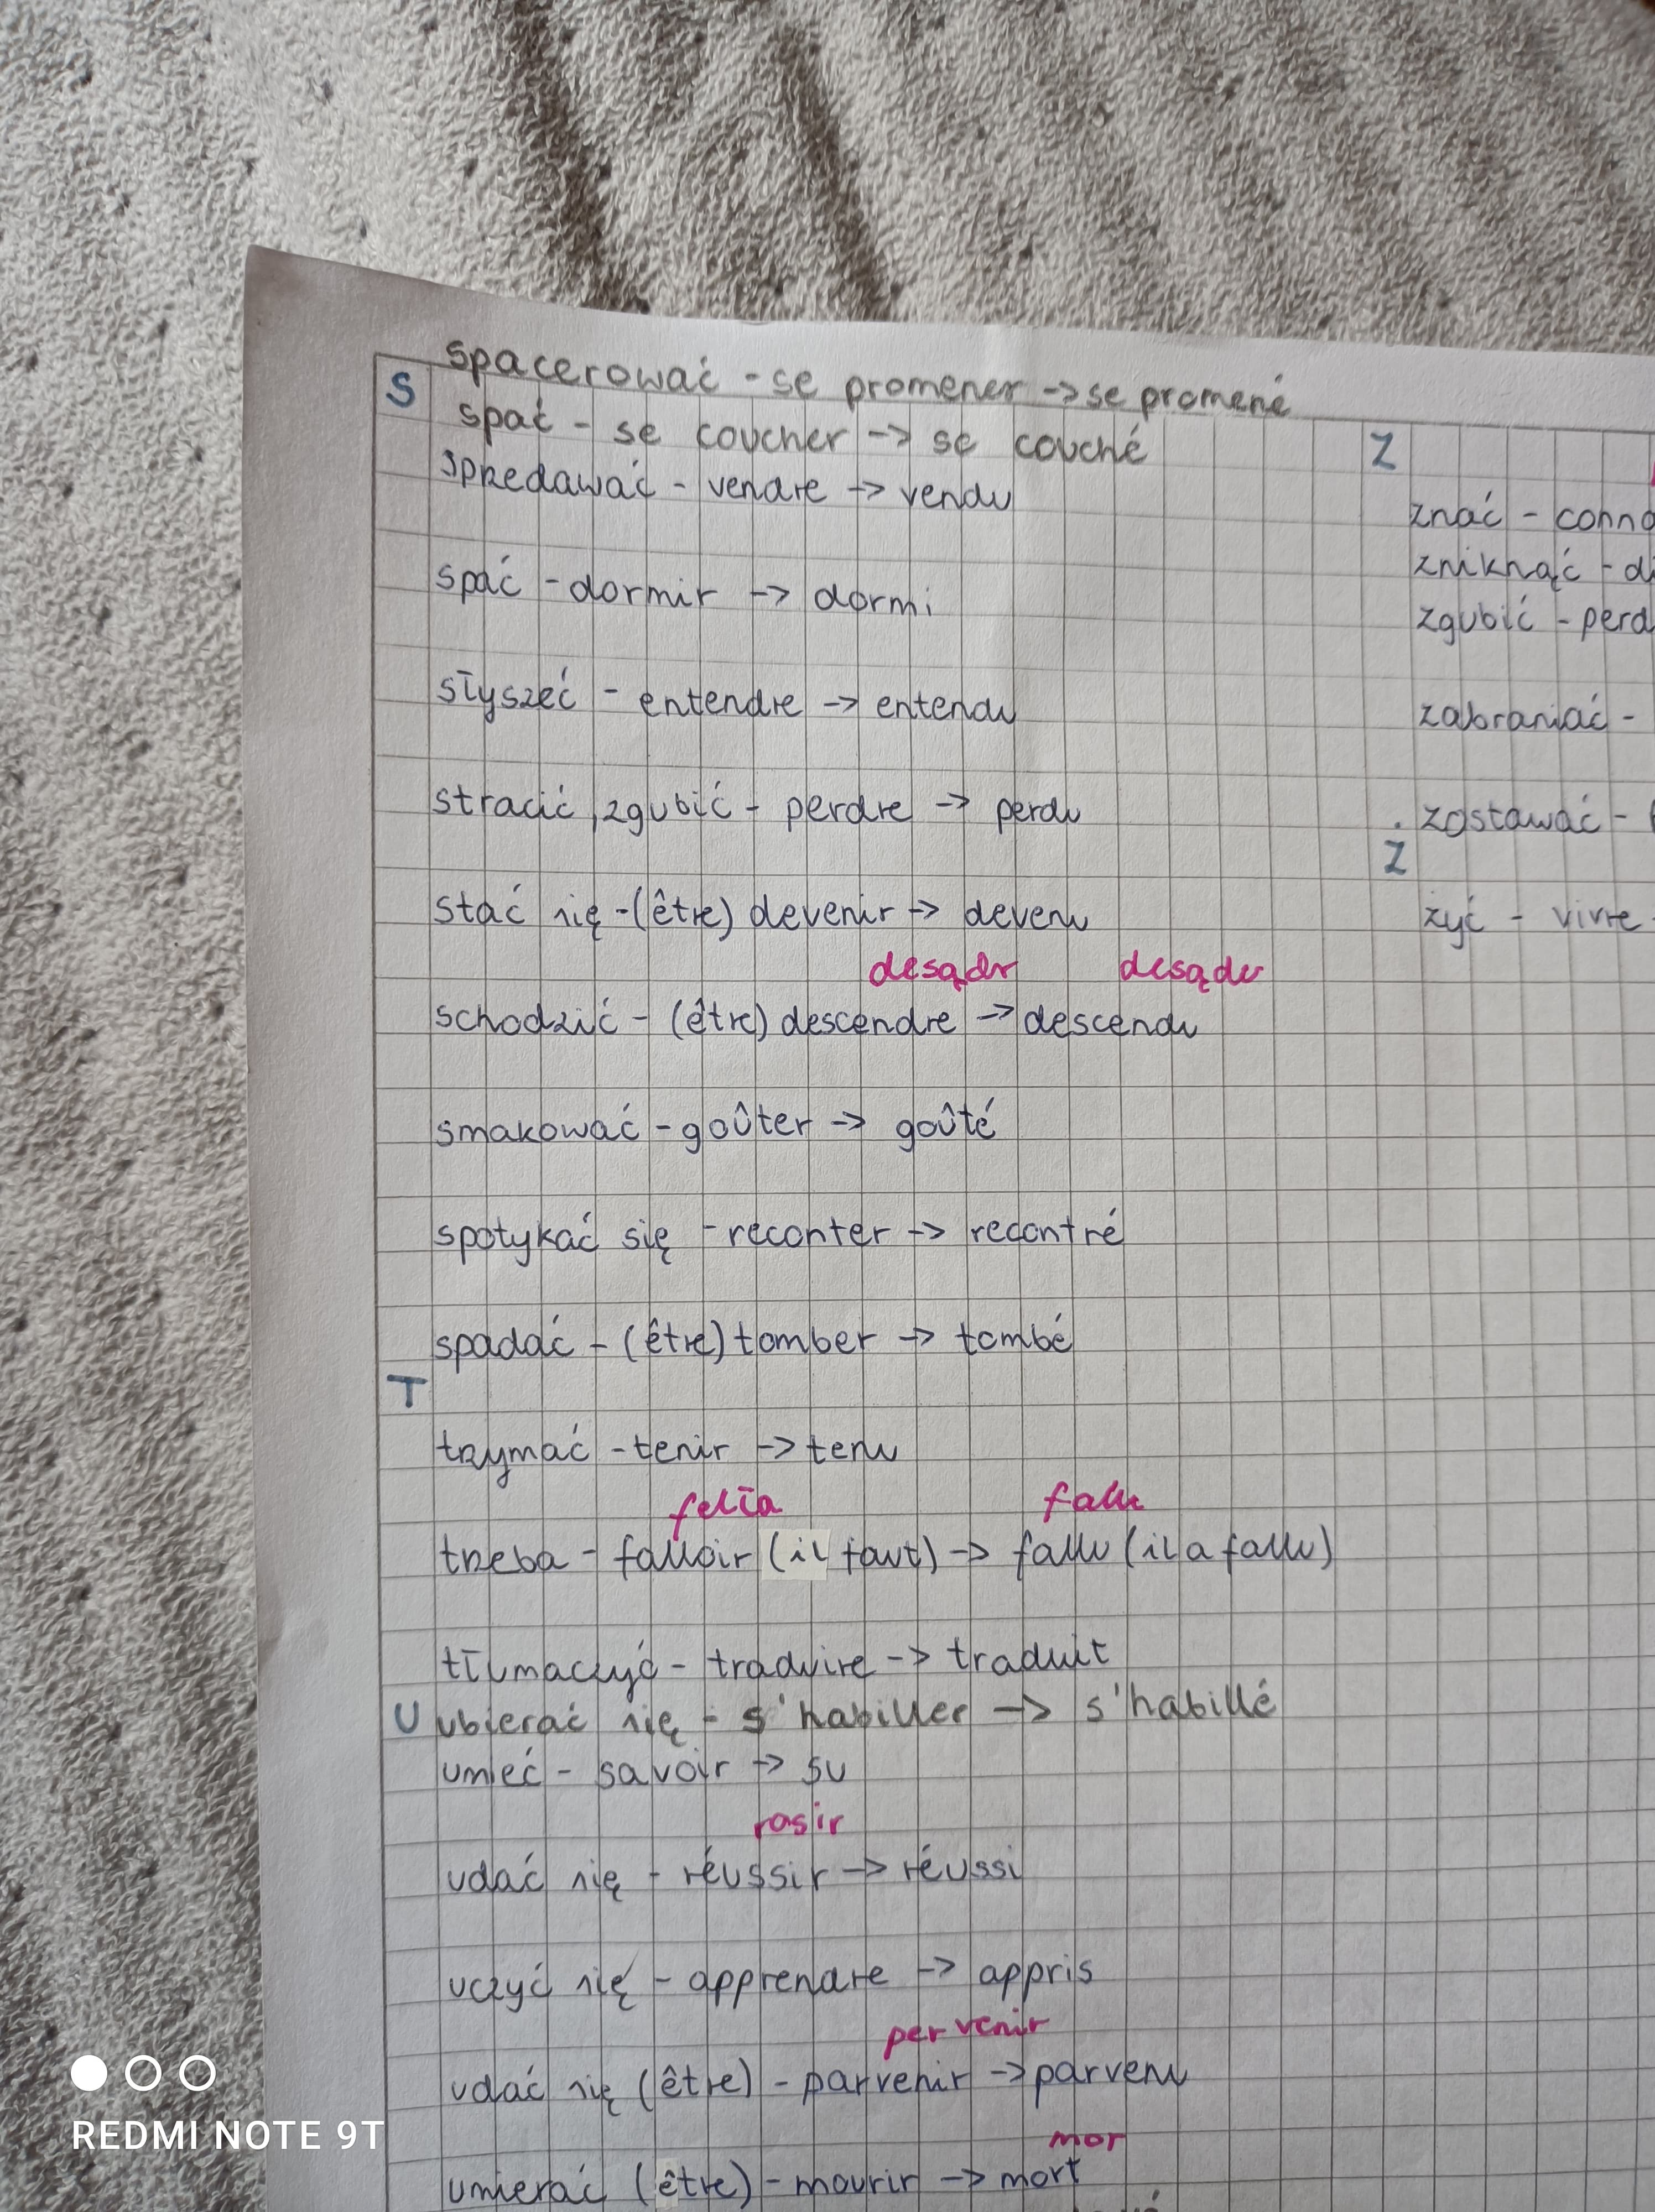 S spacerować - se promener -> se promené
spać - se coucher -> se couché
spredawać - vendre -> vendu
spać - dormir -> dormi
słyszeć - entendre -> entendu
stracić, zgubić - perdre -> perdu
stać się - (être) devenir -> devenu
desądr desądu
schodzić - (être) descendre -> descendu
smakować - goûter -> goûté
spotykać się - reconter -> recontré
spadać - (être) tomber -> tombé
T
trzymać - tenir -> tenu
felła falu
trzeba - falloir (il faut) -> fallu (il a fallu)
tłumaczyć - traduire -> traduit
U ubierać się - s'habiller -> s'habillé
umieć - savoir -> su
rasir
udać się - réussir -> réussi
uczyć się - apprendre -> appris
per venir
udać się (être) - parvenir -> parvenu
mor
umierać (être) - mourir -> mort
Z
znać - conna
zniknąć - di
zgubić - perd
zabraniać -
zostawać -
Ż
żyć - vivre -
REDMI NOTE 9T